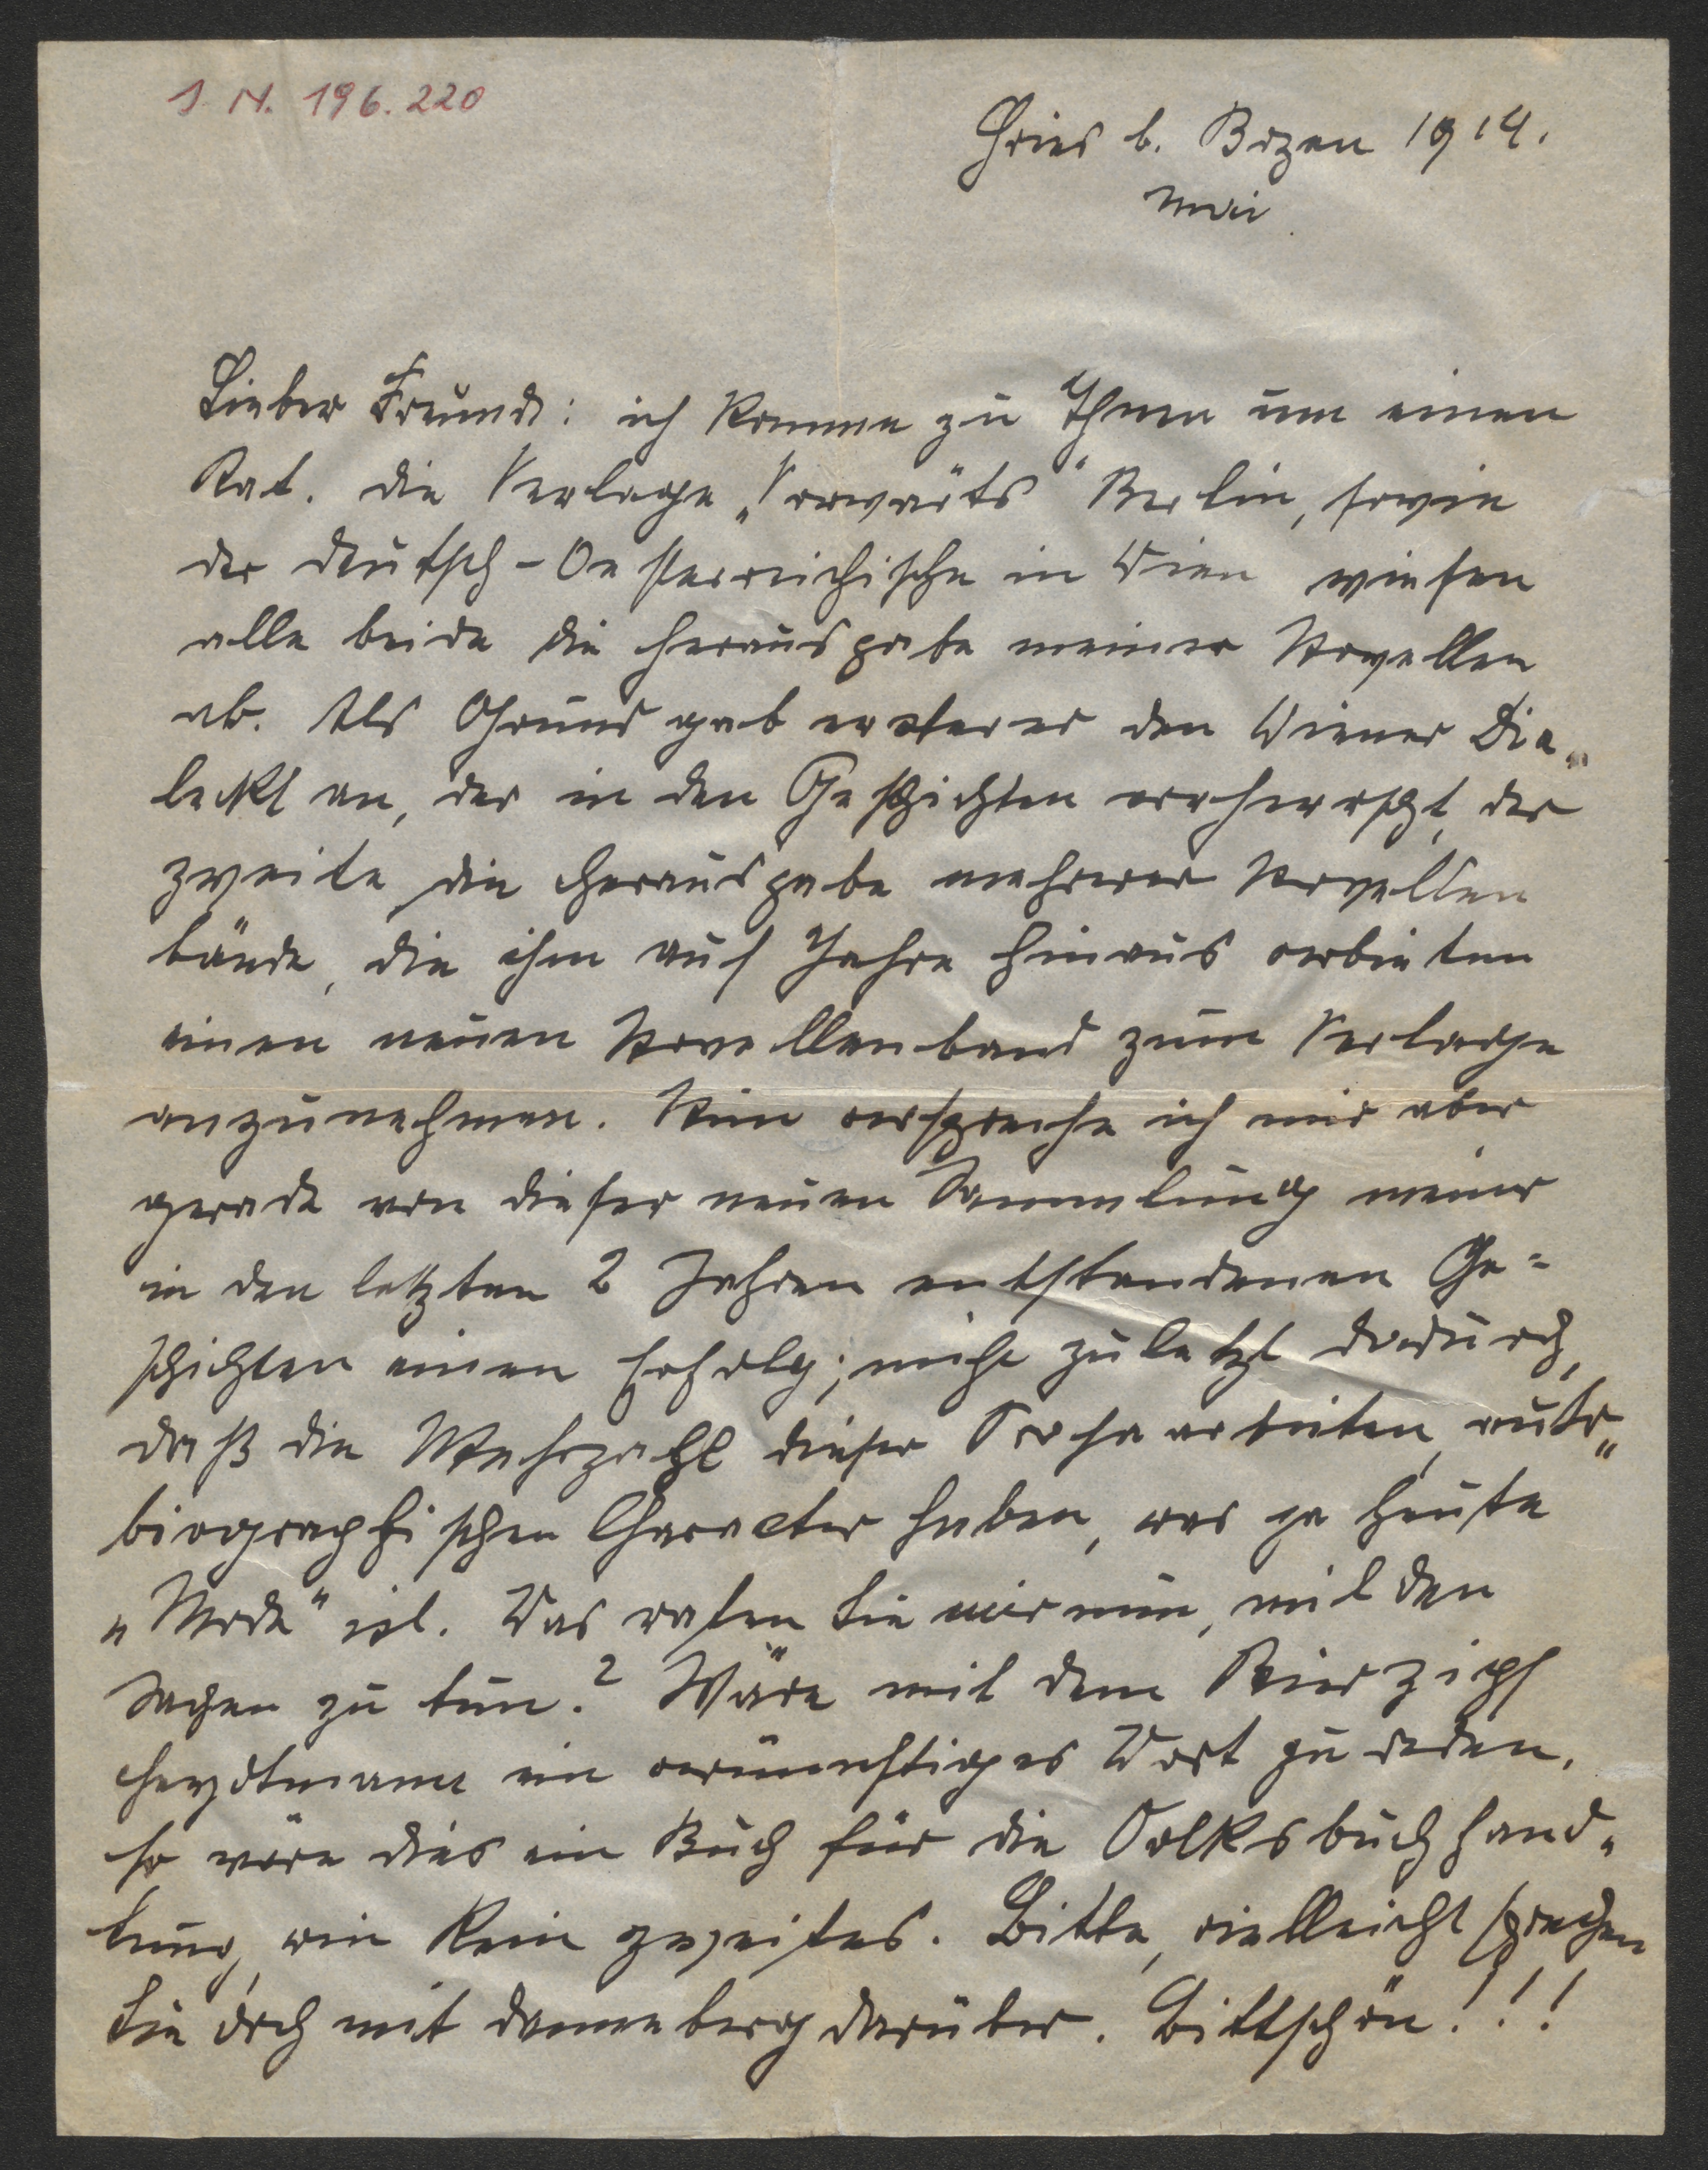 I. N. 196.220
Gries b. Bozen 1914.
Mai
Lieber Freund: ich komme zu Ihnen um einen
Rat. Die Verlage „Vorwärts“ Berlin, sowie
der Deutsch-Oesterreichische in Wien wiesen
alle beide die Herausgabe meiner Novellen
ab. Als Grund gab ersterer den Wiener Dia„
leckt an, der in den Geschichten vorherrscht, der
zweite die Herausgabe mehrerer Novellen
bände, die ihm auf Jahre hinaus verbieten
einen neuen Novellenband zum Verlage
anzunehmen. Nun verspreche ich mir aber
gerade von dieser neuen Sammlung meiner
in den letzten 2 Jahren entstandenen Ge=
schichten einen Erfolg; nicht zuletzt dadurch,
daß die Mehrzahl dieser Prosaarbeiten, auto„
biographischen Character haben, was ja heute
„Mode“ ist. Was raten Sie mir nun, mit den
Sachen zu tun? Wäre mit dem Bierzipf
Heydtmann ein vernünftiges Wort zu reden,
so wäre dies ein Buch für die Volksbuchhand„
lung, wie kein zweites. Bitte, vielleicht sprechen
Sie doch mit Danneberg darüber. Bittschön!!!